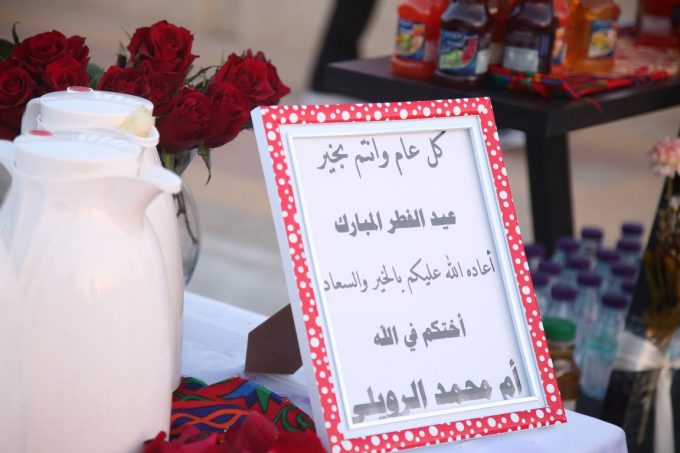 كل عام وانتم بخير
عيد الفطر المبارك
أعاده الله عليكم بالخير والسعاد
أختكم في الله
أم محمد الرويلي